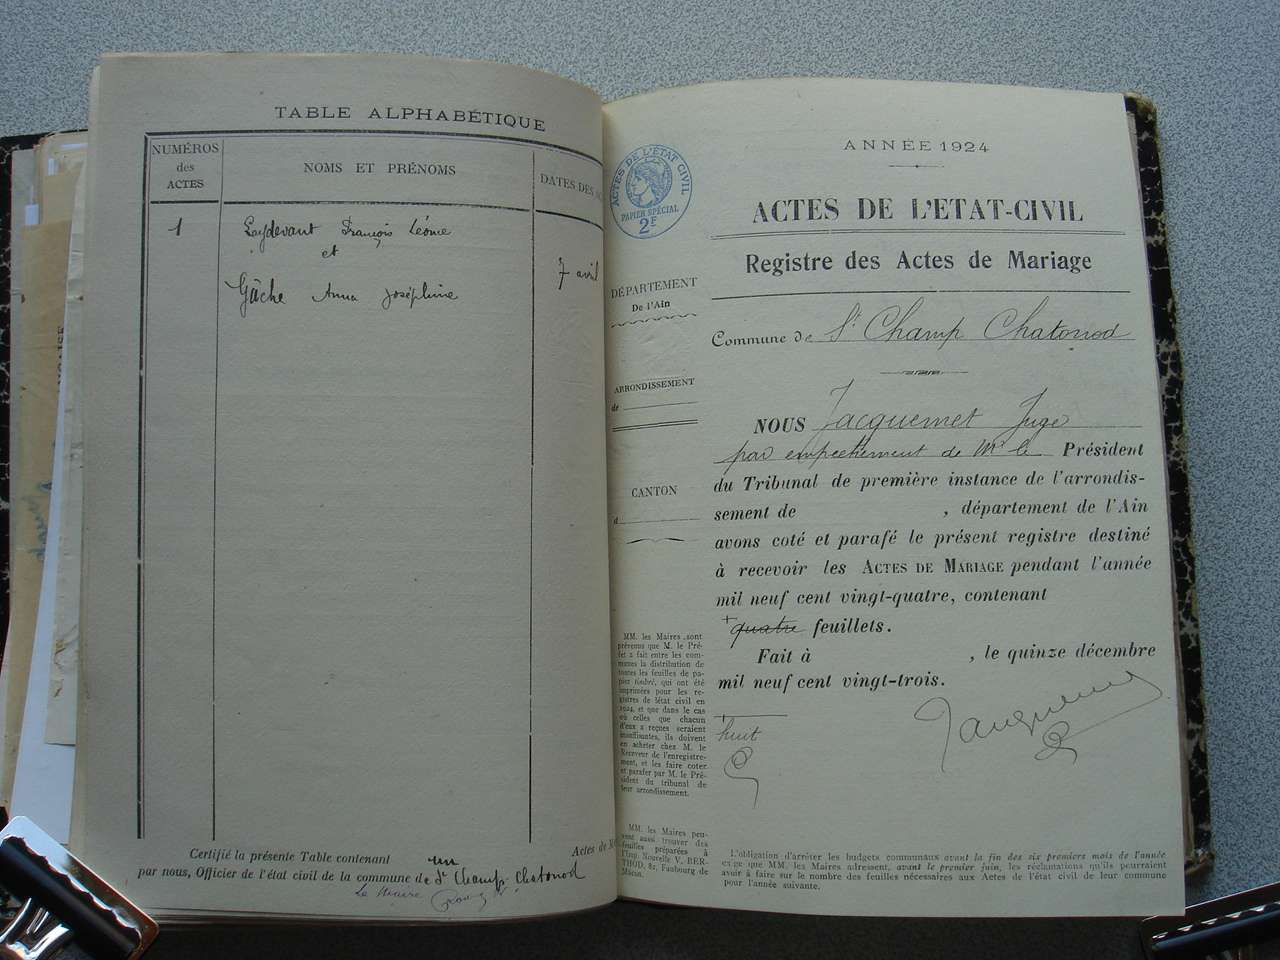 TABLE ALPHABÉTIQUE
NUMÉROS
des
ACTES
NOMS ET PRÉNOMS
DATES DES
1
Leydevant François Léonce
et
Gâche Anna Joséphine
7 avril
Certifié la présente Table contenant un Actes de
par nous, Officier de l'état civil de la commune de St Champ Chatonod
Le Maire
ACTES DE L'ÉTAT CIVIL
PAPIER SPÉCIAL
2F
DÉPARTEMENT
De l'Ain
ARRONDISSEMENT
de
CANTON
d
MM. les Maires sont
prévenus que M. le Pré-
fet a fait entre les com-
munes la distribution de
toutes les feuilles de pa-
pier timbré, qui ont été
imprimées pour les re-
gistres de létat civil en
1924, et que dans le cas
où celles que chacun
d'eux a reçues seraient
insuffisantes, ils doivent
en acheter chez M. le
Receveur de l'enregistre-
ment, et les faire coter
et parafer par M. le Pré-
sident du tribunal de
leur arrondissement.
MM. les Maires peu-
vent aussi trouver des
feuilles préparées à
l'Imp. Nouvelle V. BER-
THOD, 82, Faubourg de
Macon.
ANNÉE 1924
ACTES DE L'ETAT-CIVIL
Registre des Actes de Mariage
Commune de St Champ Chatonod
NOUS Jacquemet Juge
par empechement de Mr le Président
du Tribunal de première instance de l'arrondis-
sement de , département de l'Ain
avons coté et parafé le présent registre destiné
à recevoir les ACTES DE MARIAGE pendant l'année
mil neuf cent vingt-quatre, contenant
+ quatre feuillets.
Fait à , le quinze décembre
mil neuf cent vingt-trois.
+ huit
Jacquemet
L'obligation d'arrêter les budgets communaux avant la fin des six premiers mois de l'année
exige que MM. les Maires adressent, avant le premier juin, les réclamations qu'ils pourraient
avoir à faire sur le nombre des feuilles nécessaires aux Actes de l'état civil de leur commune
pour l'année suivante.